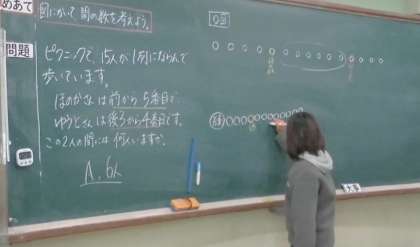 めあて
図にかいて間の数を考えよう。
問題
ピクニックで、15人が1列にならんで
歩いています。
ほのかさんは前から5番目で
ゆうとさんは後ろから4番目です。
この2人の間には何人いますか。
A. 6人